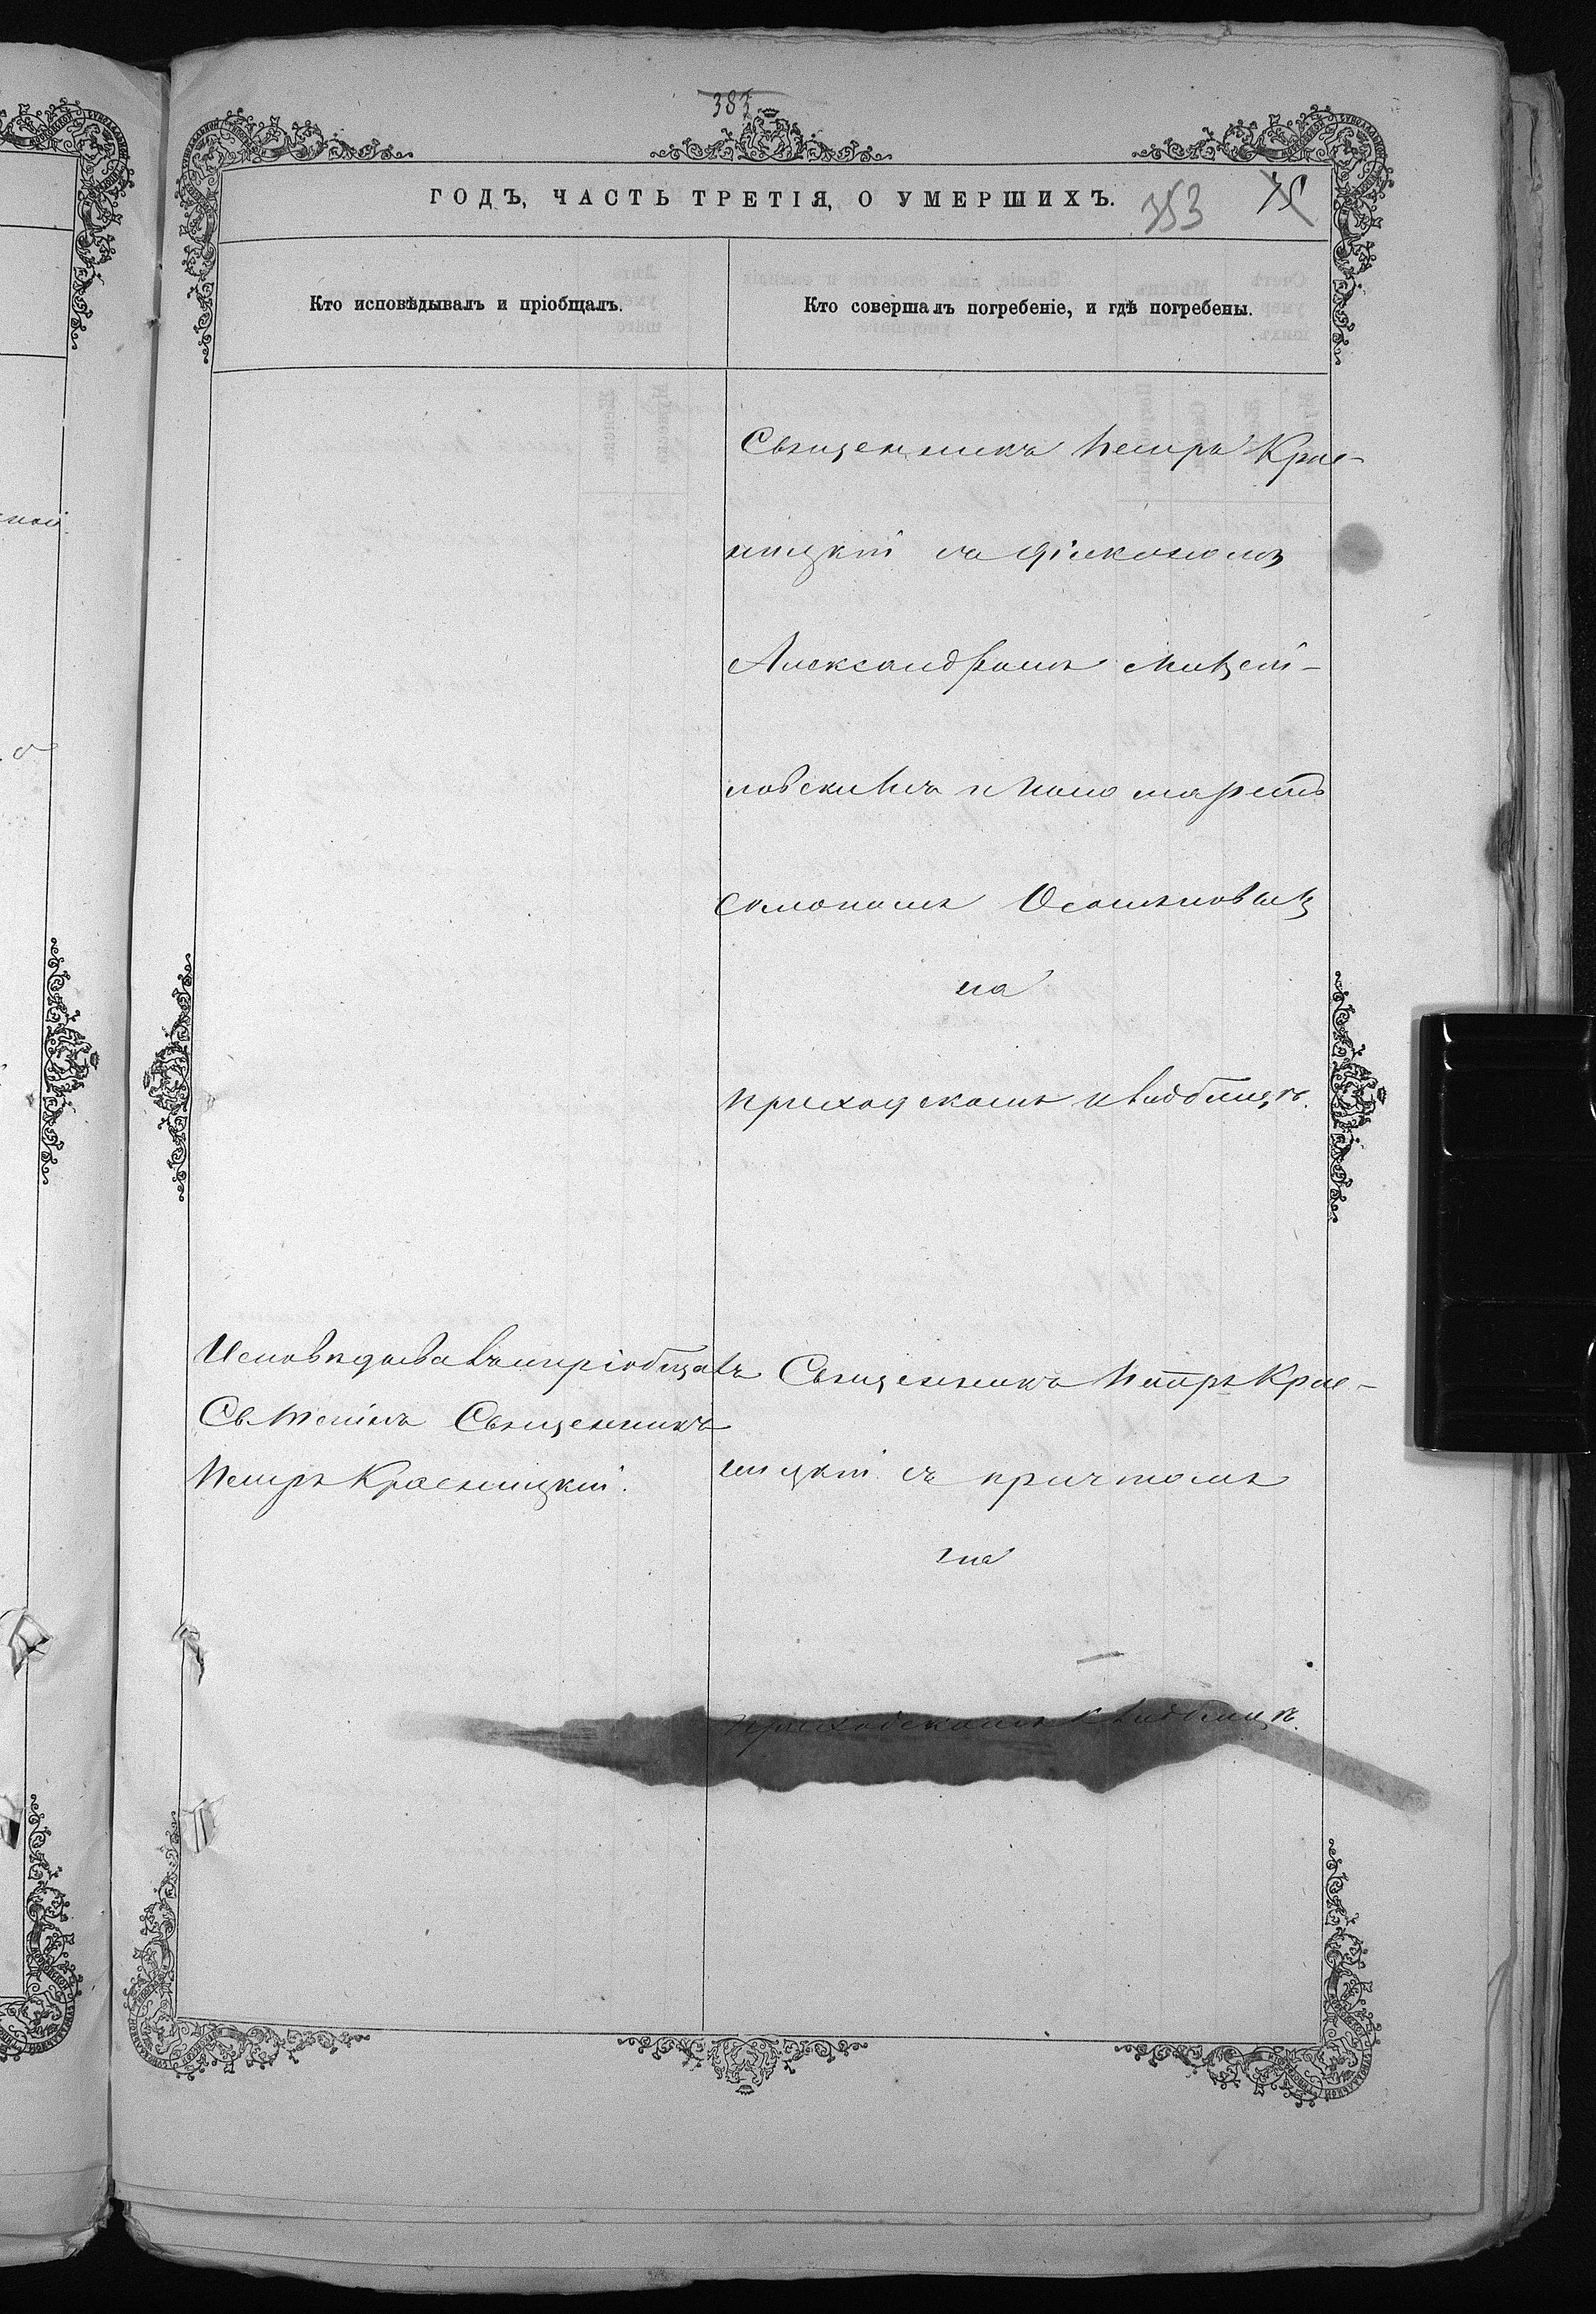 383
ГОДЪ, ЧАСТЬ ТРЕТІЯ, О УМЕРШИХЪ.
353 75
Кто исповѣдывалъ и пріобщалъ.
Кто совершалъ погребеніе, и гдѣ погребены.
Священникъ Петръ Крас-
ницкій съ діякономъ
Александромъ
и пономаремъ
на
приходскомъ кладбищѣ.
Исповѣдывалъ и пріобщалъ
Св Тайнъ Священникъ
Петръ Красницкій.
Священникъ Петръ Крас-
ницкій съ причтомъ
на
приходскомъ кладбищѣ.